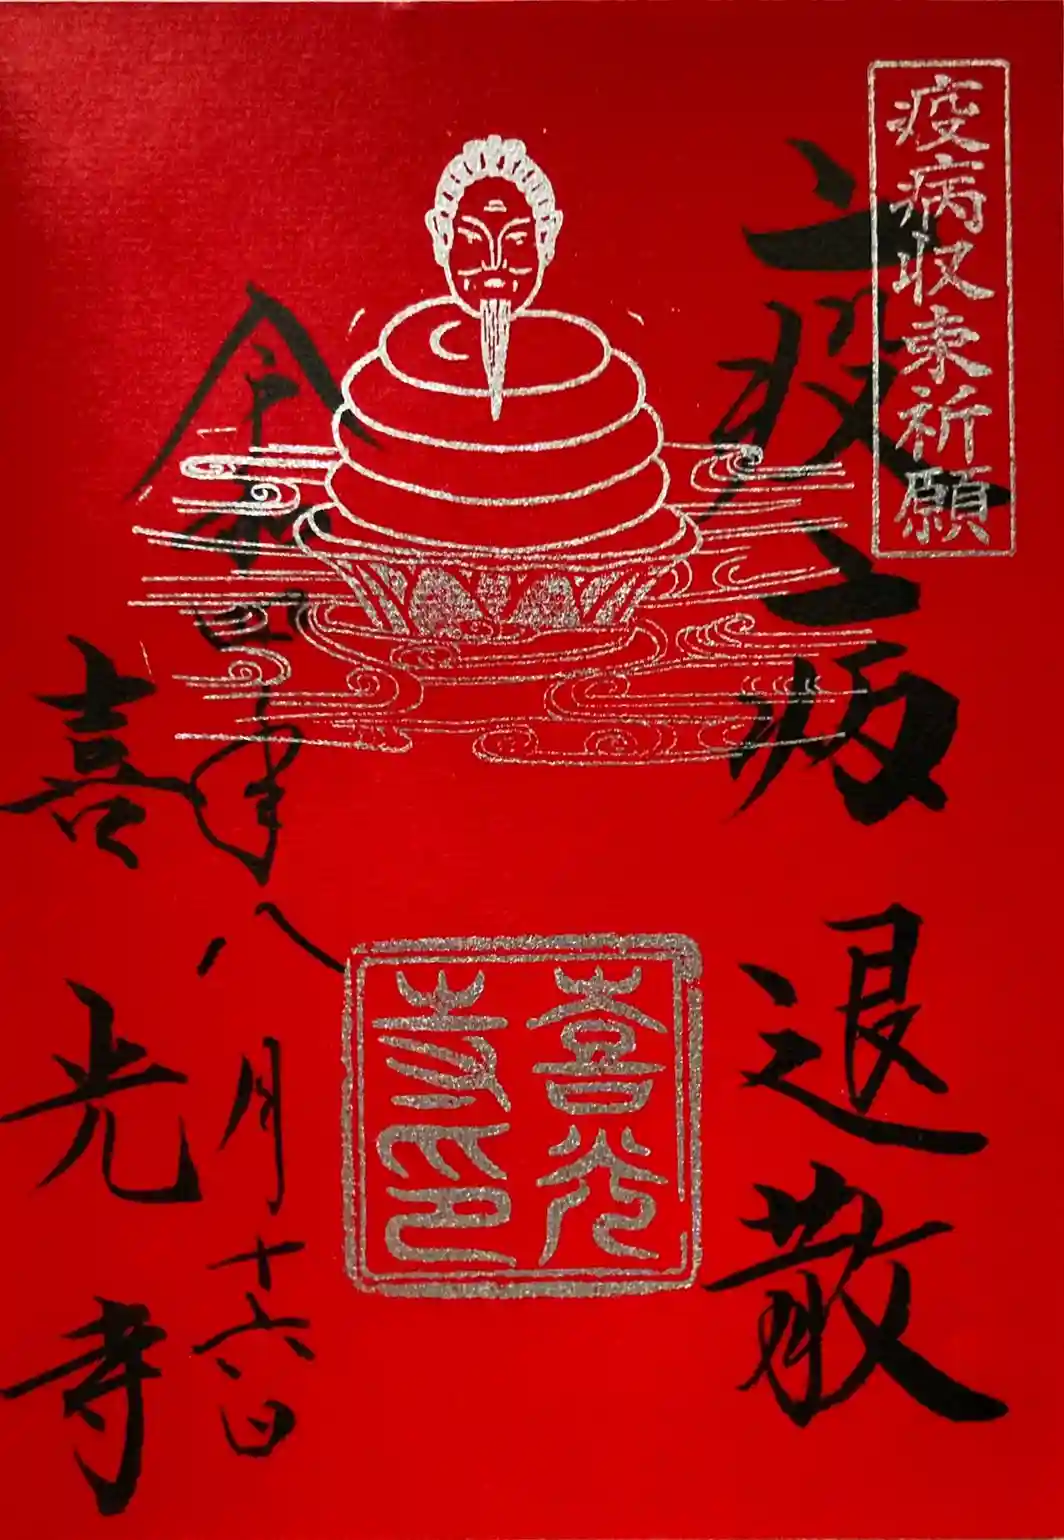 疫病収束祈願
疫病退散
喜光寺印
令和四年八月十六日
喜光寺